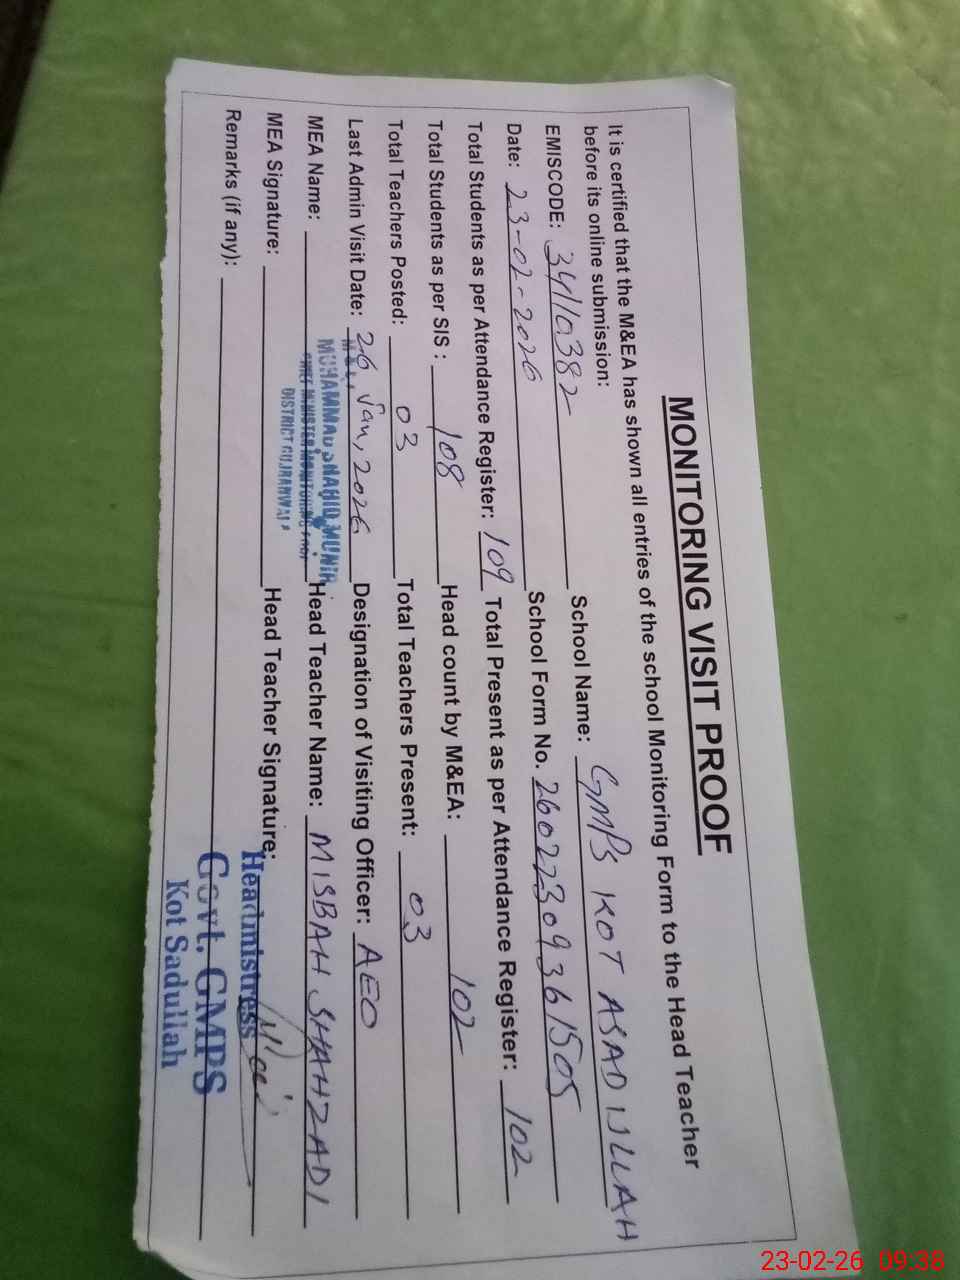 MONITORING VISIT PROOF
It is certified that the M&EA has shown all entries of the school Monitoring Form to the Head Teacher
before its online submission:
EMISCODE: 34110382 School Name: GMPS KOT ASADULLAH
Date: 23-02-2026 School Form No. 26022309361505
Total Students as per Attendance Register: 109 Total Present as per Attendance Register: 102
Total Students as per SIS : 108 Head count by M&EA: 102
Total Teachers Posted: 03 Total Teachers Present: 03
Last Admin Visit Date: 26 Jan, 2026 Designation of Visiting Officer: AEO
MEA Name: Head Teacher Name: MISBAH SHAHZADI
MUHAMMAD SHAHID MUNIR
CHIEF MINISTER MONITORING
DISTRICT GUJRANWALA
MEA Signature: Head Teacher Signature:
Remarks (if any):
Headmistress
Govt. GMPS
Kot Sadullah
23-02-26 09:38